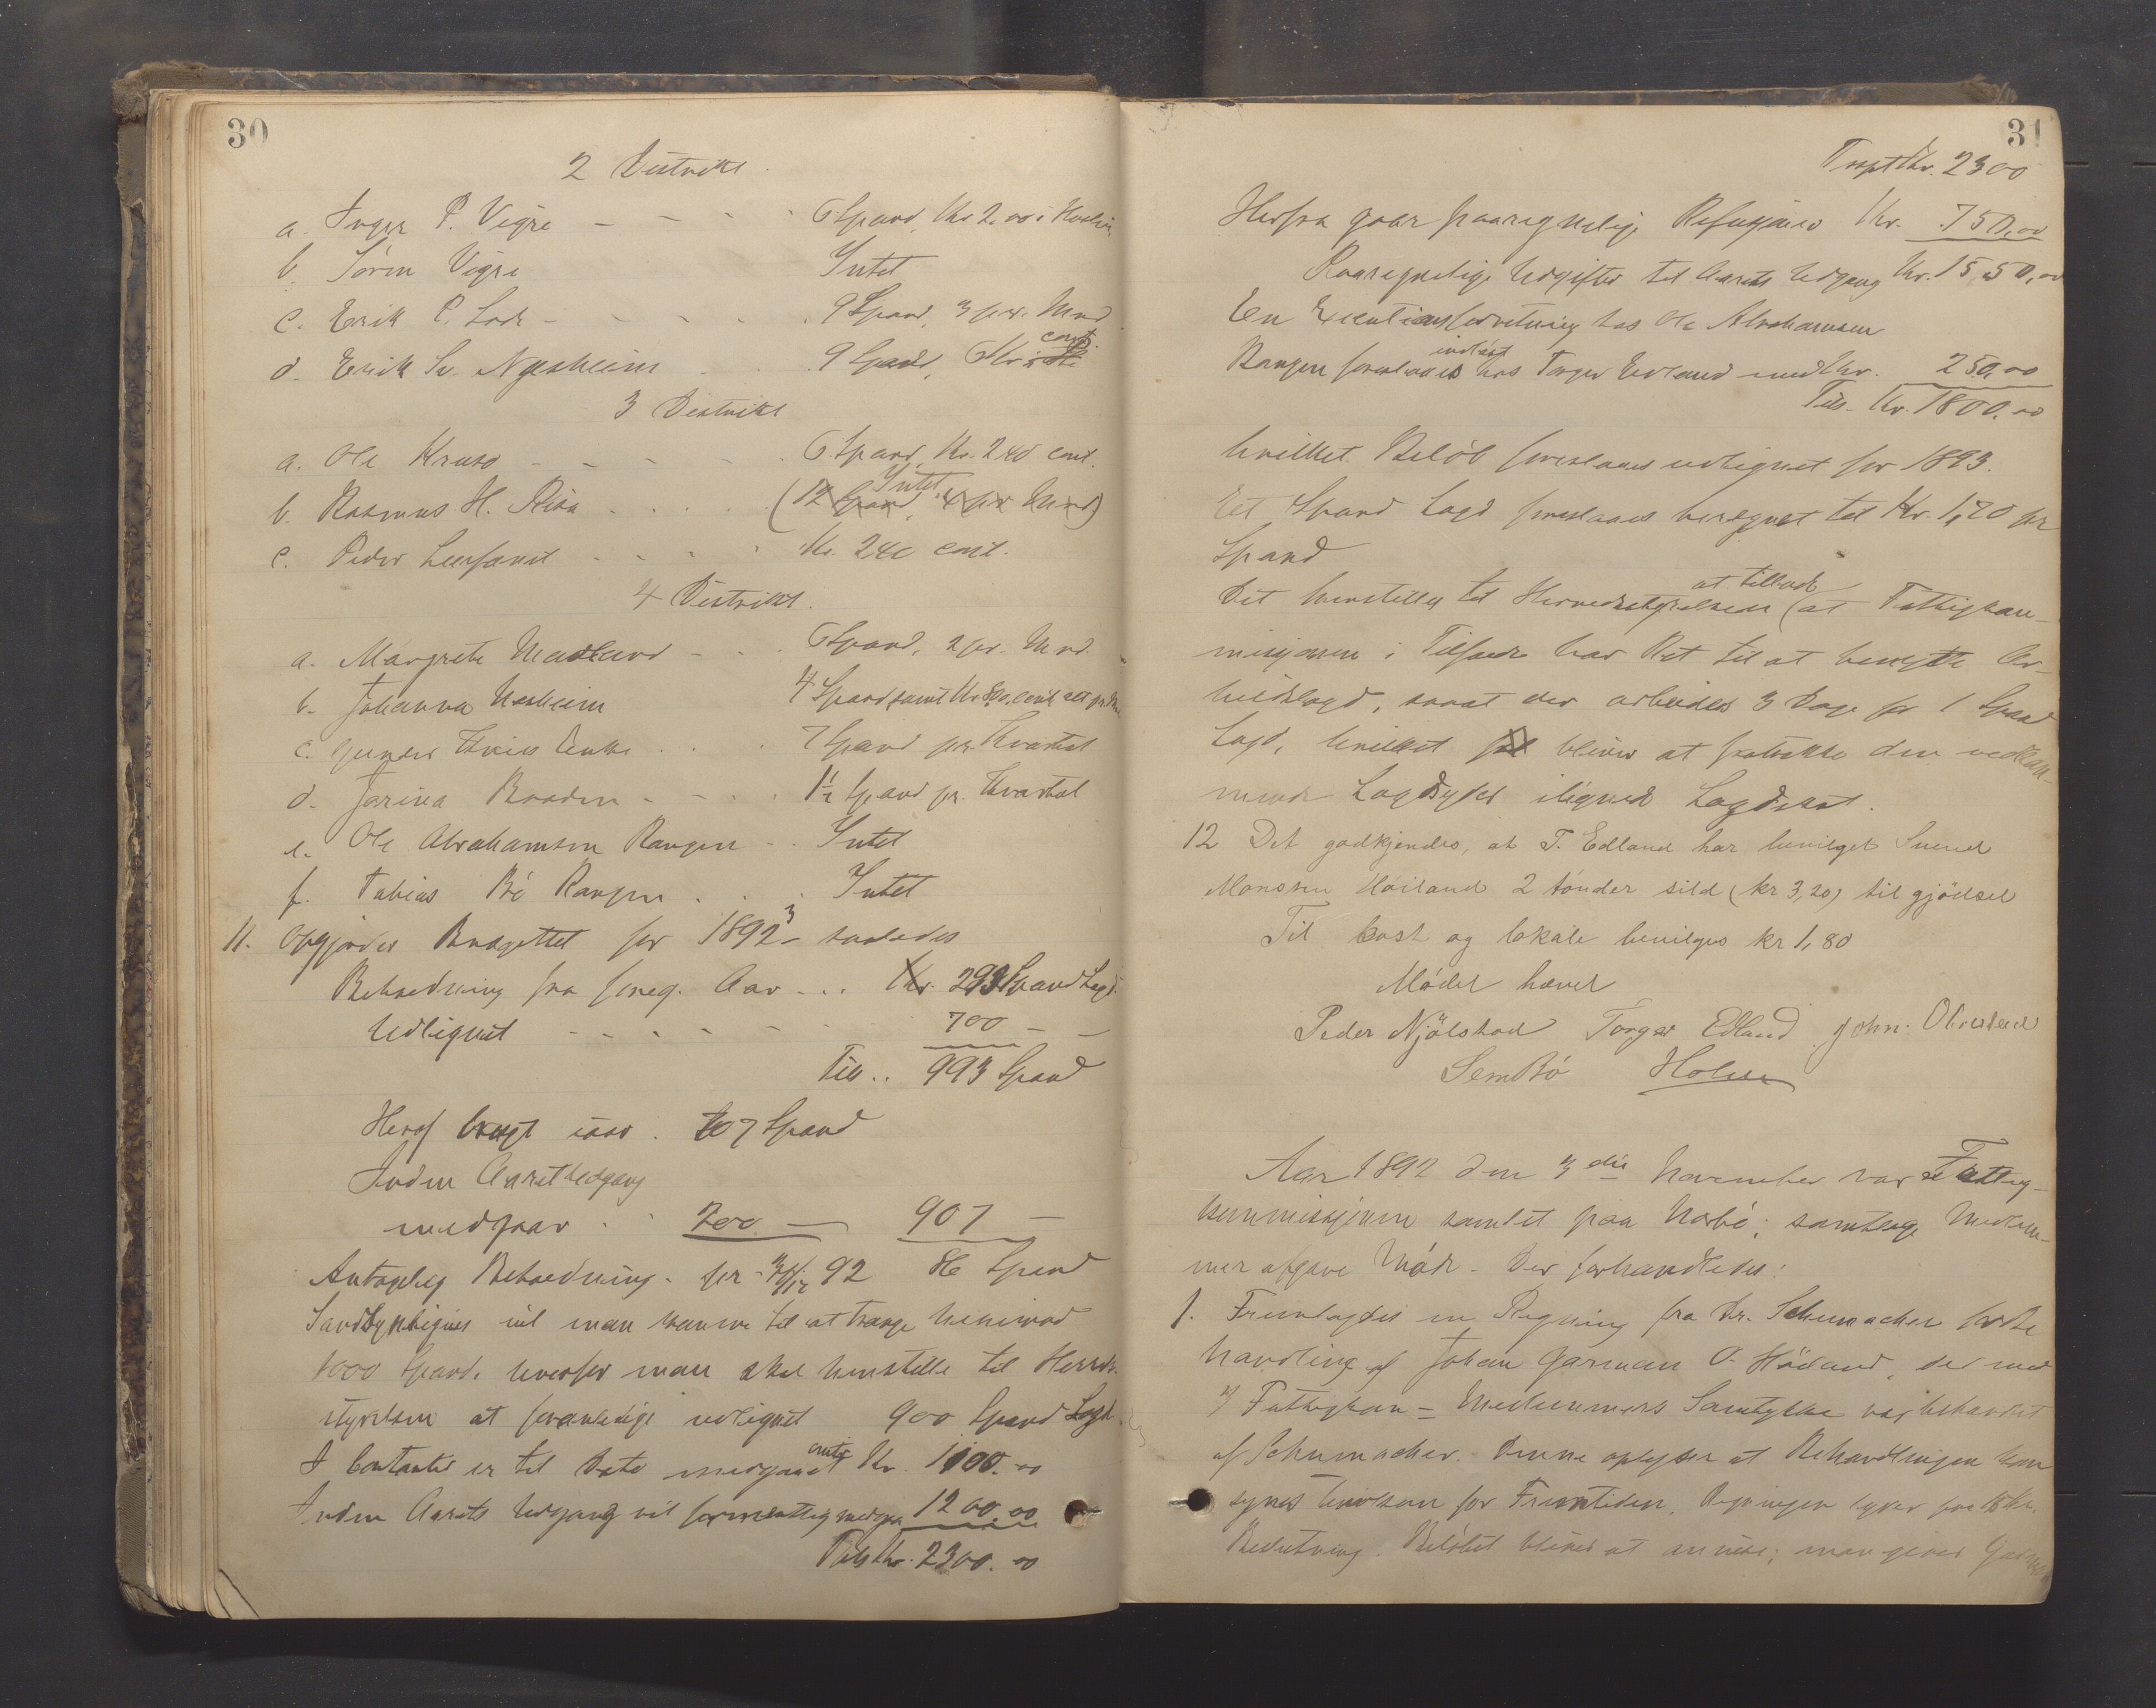 30
2 Distrikt.
a. Inger P. Vigre - - - - 6 Spand, Kr 2.00 i
b. Sören Vigre Intet
c. Erik P. - - - - 9 Spand, 3 pr. Mnd
cont.
d. Erik Sv. Njæsheim - - 9 Spand, 6 Kr
3 Distrikt
a. Ole Kruso - - - - 6 Spand, Kr. 240 cont.
Intet
b. Rasmus H. Risa . . . . . (12 Spand, 4 pr Mnd)
c. Peder - - - - Kr. 240 cont.
4 Distrikt.
a. Margrete Madland - - - 6 Spand, 2 pr. Mnd.
b. Johanna Næsheim 4 Spand samt Kr 8,00 cont
c. Gunder Enke . . . 7 Spand pr. Kvartal
d. Jorina Braaden - - - 1½ Spand pr. Kvartal
e. Ole Abrahamsen Rangen - . Intet
f. Tobias Bö Rangen . . . Intet
11. Opgjordes Budgettet for 1893 saaledes
Beholdning fra foreg. Aar ... Kr. 293 Spand Lægd.
Udlignet - - - - - - 700 — —
Till .. 993 Spand
Heraf brugt iaar . 207 Spand
Inden Aarets Udgang
medgaar . . 700 — 907 —
Antagelig Beholdning pr 31/12 92 86 Spand
Sandsynligvis vil man komme til at trænge henimod
1000 Spand, hvorfor man skal henstille til Herreds-
styrelsen at foranledige udlignet 900 Spand Lægd.
I Contanter er til Dato medgaaet omtr Kr. 1100.00
Inden Aarets Udgang vil formentlig medgaa 1200.00
Tils Kr. 2300.00
31
Trspt Kr. 2300
Herfra gaar paaregnelig Refusjoner Kr. 750,00
Paaregnelige Udgifter til Aarets Udgang Kr. 1550,00
En Executionsforretning hos Ole Abrahamsen
indlöst
Rangen foreslaaes hos Torger Edland med Kr. 250,00
Tils. Kr. 1800.00
hvilket Belöb foreslaaes udlignet for 1893.
Et Spand Lagd foreslaaes beregnet til Kr. 1,20 pr
Spand
at tillade
Det henstilles til Herredsstyrelsen (at Fattigkom-
misjonen i Tilfælde har Ret til at benytte Ar-
beidslagd, saaat der arbeides 3 Dage for 1 Spand
Lagd, hvilket bliver at fratrække den vedkom-
mende Lagdsyder ilignede Lagdskat.
12 Det godkjendes, at T. Edland har bevilget Svend
Monsen Höiland 2 tönder sild (kr 3,20) til gjödsel
Til kost og lokale bevilges kr 1,80
Mödet hævet
Peder Njölstad Torger Edland John. Olvestad
Sem Bö Holm
Aar 1892 den 3die November var Fattig-
kommisjonen samlet paa Narbö; samtlige Medlem-
mer afgave Möde. Der forhandledes:
1. Fremlagdes en Regning fra Dr. Schumacher for Be
handling af Johan Garman O. Höiland, der med
3 Fattigkom- Medlemmers Samtykke var behandlet
af Schumacher. Denne oplyser at Behandlingen kan
synes for Fremtiden. Regningen lyder paa Kr.
Beslutning. Belöbet bliver at anvise; man giver